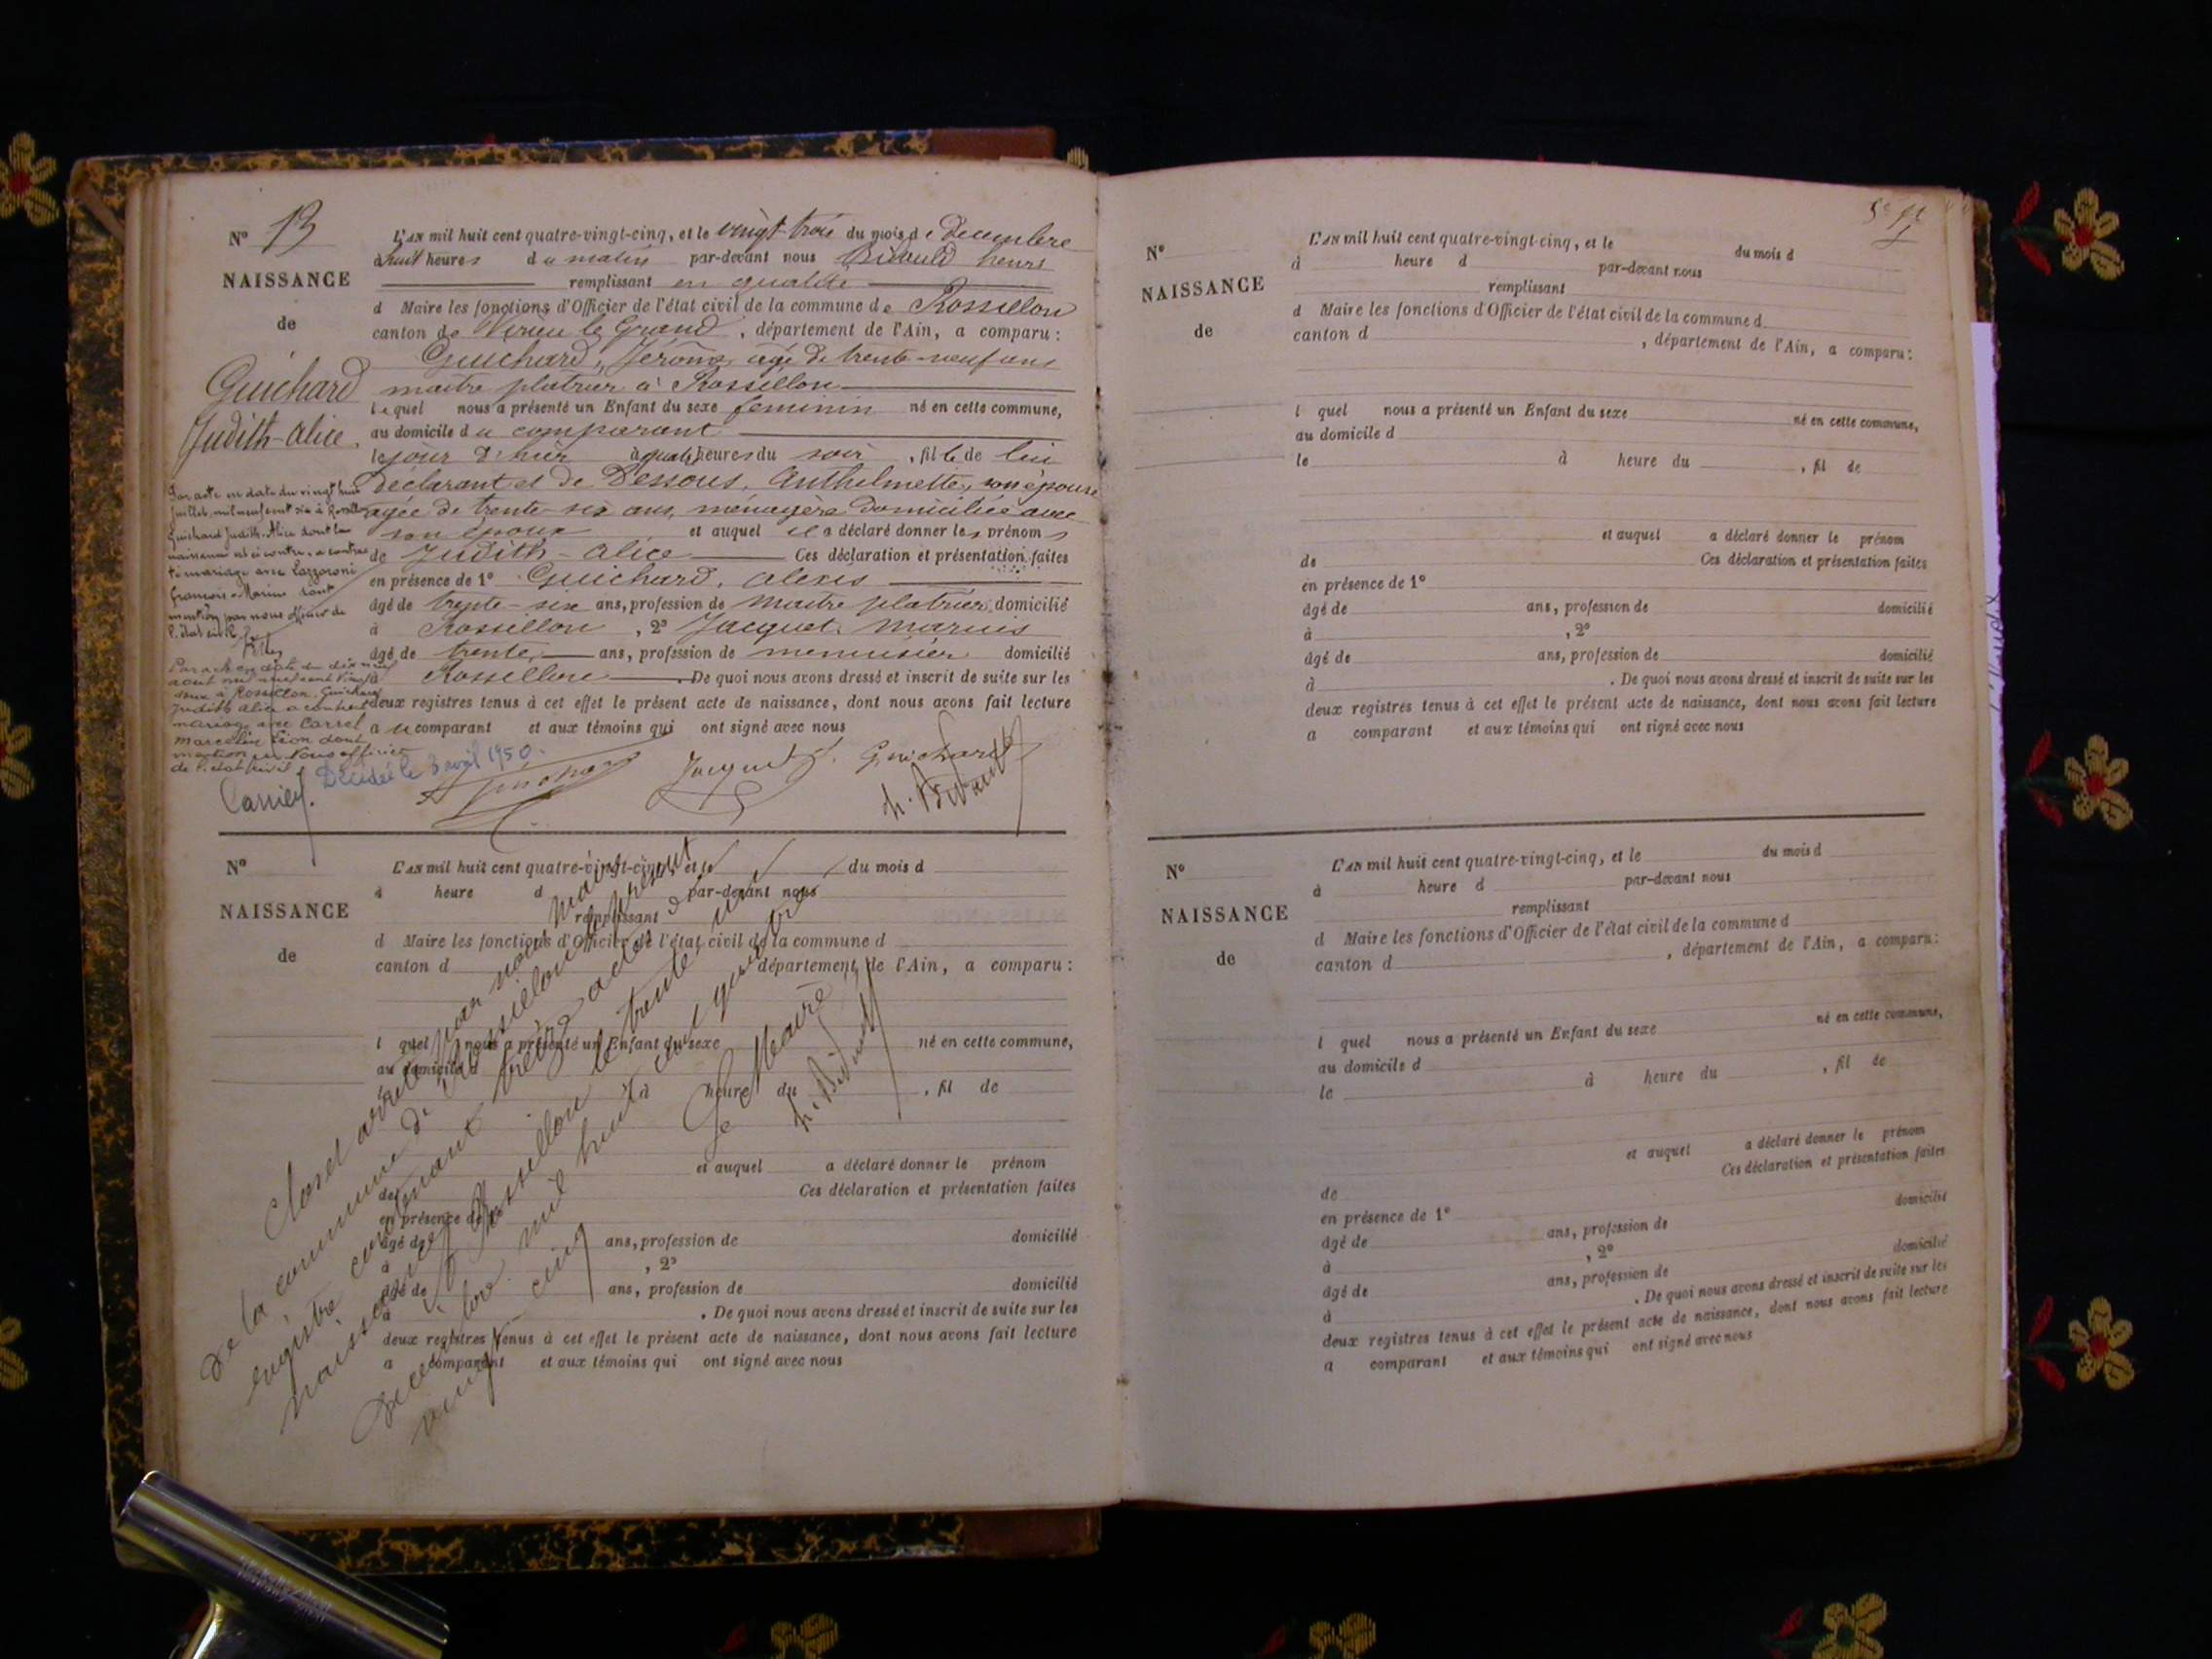 Nº 13
NAISSANCE
de
Guichard
Judith-Alice.
L'AN mil huit cent quatre-vingt-cinq, et le vingt-trois du mois de Décembre
à huit heures du matin par-devant nous Bidauld henri
remplissant en qualité
d Maire les fonctions d'Officier de l'état civil de la commune de Rossillon
canton de Virieu le Grand, département de l'Ain, a comparu:
Guichard, Jérôme, agé de trente-neuf ans
maitre platrier à Rossillon
lequel nous a présenté un Enfant du sexe feminin né en cette commune,
au domicile du comparant
le jour d'hier à heures du soir, fille de lui
déclarant et de Dessous, Anthelmette, son épouse
agée de trente-six ans, ménagère domiciliée avec
son époux et auquel il a déclaré donner les prénoms
de Judith-Alice Ces déclaration et présentation faites
en présence de 1º Guichard, Alexis
âgé de trente-six ans, profession de maitre platrier, domicilié
à Rossillon, 2º Jacquet, Marius
âgé de trente ans, profession de menuisier domicilié
à Rossillon. De quoi nous avons dressé et inscrit de suite sur les
deux registres tenus à cet effet le présent acte de naissance, dont nous avons fait lecture
au comparant et aux témoins qui ont signé avec nous
Par acte en date du vingt huit
Juillet, mil neuf cent six à Rossillon
Guichard Judith-Alice dont la
naissance est ci contre, a contrac
té mariage avec Lazzaroni
François-Marius dont
mention par nous officier de
l'état civil
Par acte en date du dix neuf
aout mil neuf cent vingt
deux à Rossillon, Guichard
Judith Alice a contracté
mariage avec Carrel
Marcelin Léon dont
mention par Nous officier
de l'état civil
Décédée le 3 avril 1950.
Guichard
Jacquet
Guichard
h. Bidauld
Nº
NAISSANCE
de
L'AN mil huit cent quatre-vingt-cinq, et le du mois d
à heure d par-devant nous
remplissant
d Maire les fonctions d'Officier de l'état civil de la commune d
canton d département de l'Ain, a comparu:
l quel nous a présenté un Enfant du sexe né en cette commune,
au domicile d
le à heure du , fil de
et auquel a déclaré donner le prénom
de Ces déclaration et présentation faites
en présence de 1º
âgé de ans, profession de domicilié
à , 2º
âgé de ans, profession de domicilié
à . De quoi nous avons dressé et inscrit de suite sur les
deux registres tenus à cet effet le présent acte de naissance, dont nous avons fait lecture
a comparant et aux témoins qui ont signé avec nous
Clos et arrêté par nous Maire
de la commune de Rossillon le présent
registre contenant treize actes de
naissance à Rossillon le trente un
Décembre mil huit cent quatre
vingt-cinq
Le Maire
h. Bidauld
Nº
NAISSANCE
de
L'AN mil huit cent quatre-vingt-cinq, et le du mois d
à heure d par-devant nous
remplissant
d Maire les fonctions d'Officier de l'état civil de la commune d
canton d , département de l'Ain, a comparu:
l quel nous a présenté un Enfant du sexe né en cette commune,
au domicile d
le à heure du , fil de
et auquel a déclaré donner le prénom
de Ces déclaration et présentation faites
en présence de 1º
âgé de ans, profession de domicilié
à , 2º
âgé de ans, profession de domicilié
à . De quoi nous avons dressé et inscrit de suite sur les
deux registres tenus à cet effet le présent acte de naissance, dont nous avons fait lecture
a comparant et aux témoins qui ont signé avec nous
Nº
NAISSANCE
de
L'AN mil huit cent quatre-vingt-cinq, et le du mois d
à heure d par-devant nous
remplissant
d Maire les fonctions d'Officier de l'état civil de la commune d
canton d , département de l'Ain, a comparu:
l quel nous a présenté un Enfant du sexe né en cette commune,
au domicile d
le à heure du , fil de
et auquel a déclaré donner le prénom
de Ces déclaration et présentation faites
en présence de 1º
âgé de ans, profession de domicilié
à , 2º
âgé de ans, profession de domicilié
à . De quoi nous avons dressé et inscrit de suite sur les
deux registres tenus à cet effet le présent acte de naissance, dont nous avons fait lecture
a comparant et aux témoins qui ont signé avec nous